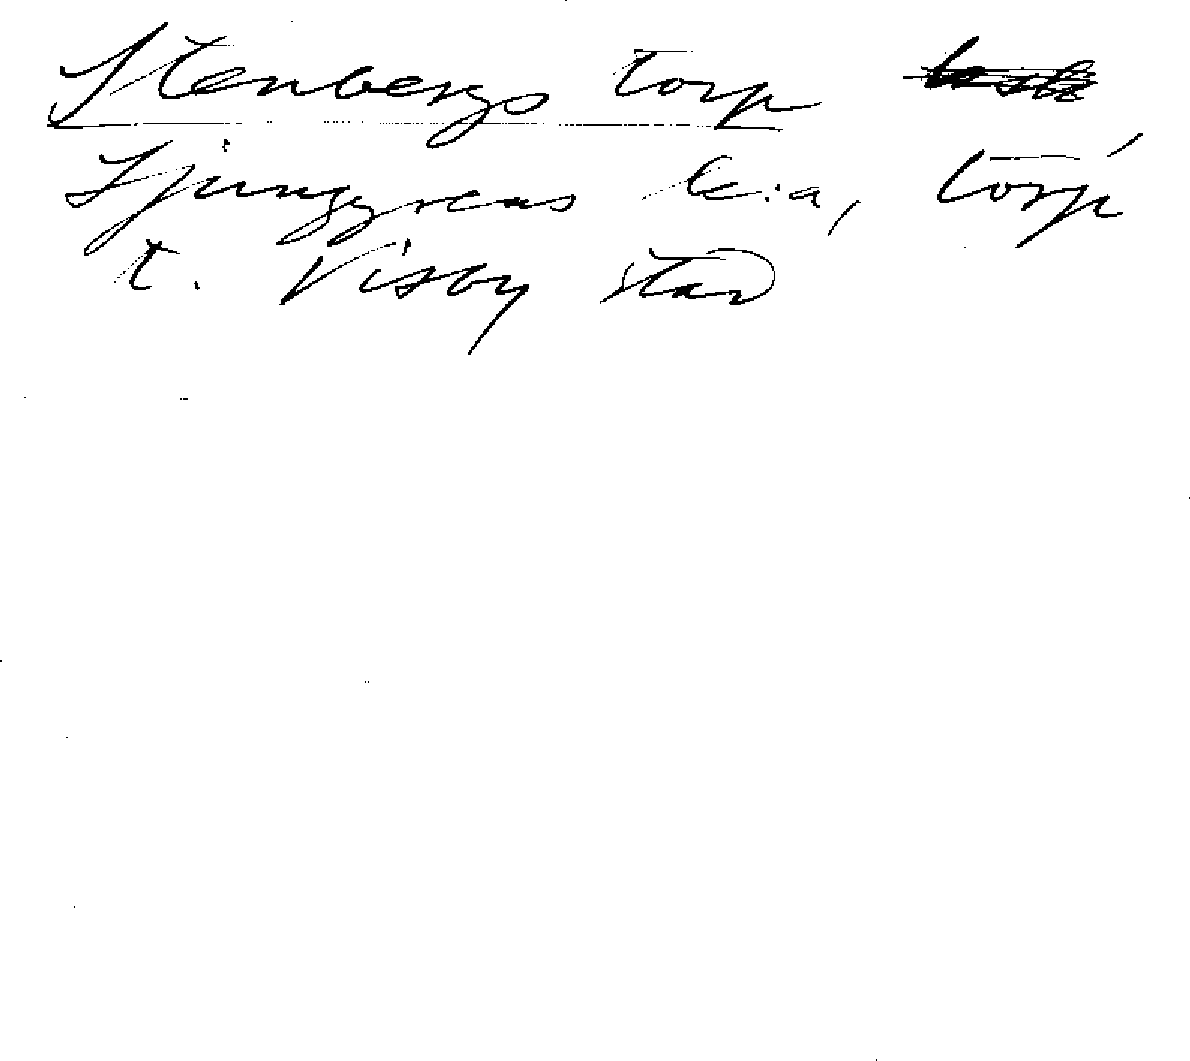 Stenbergs torp
Ljunggrens k:a, torp
t. Visby stad